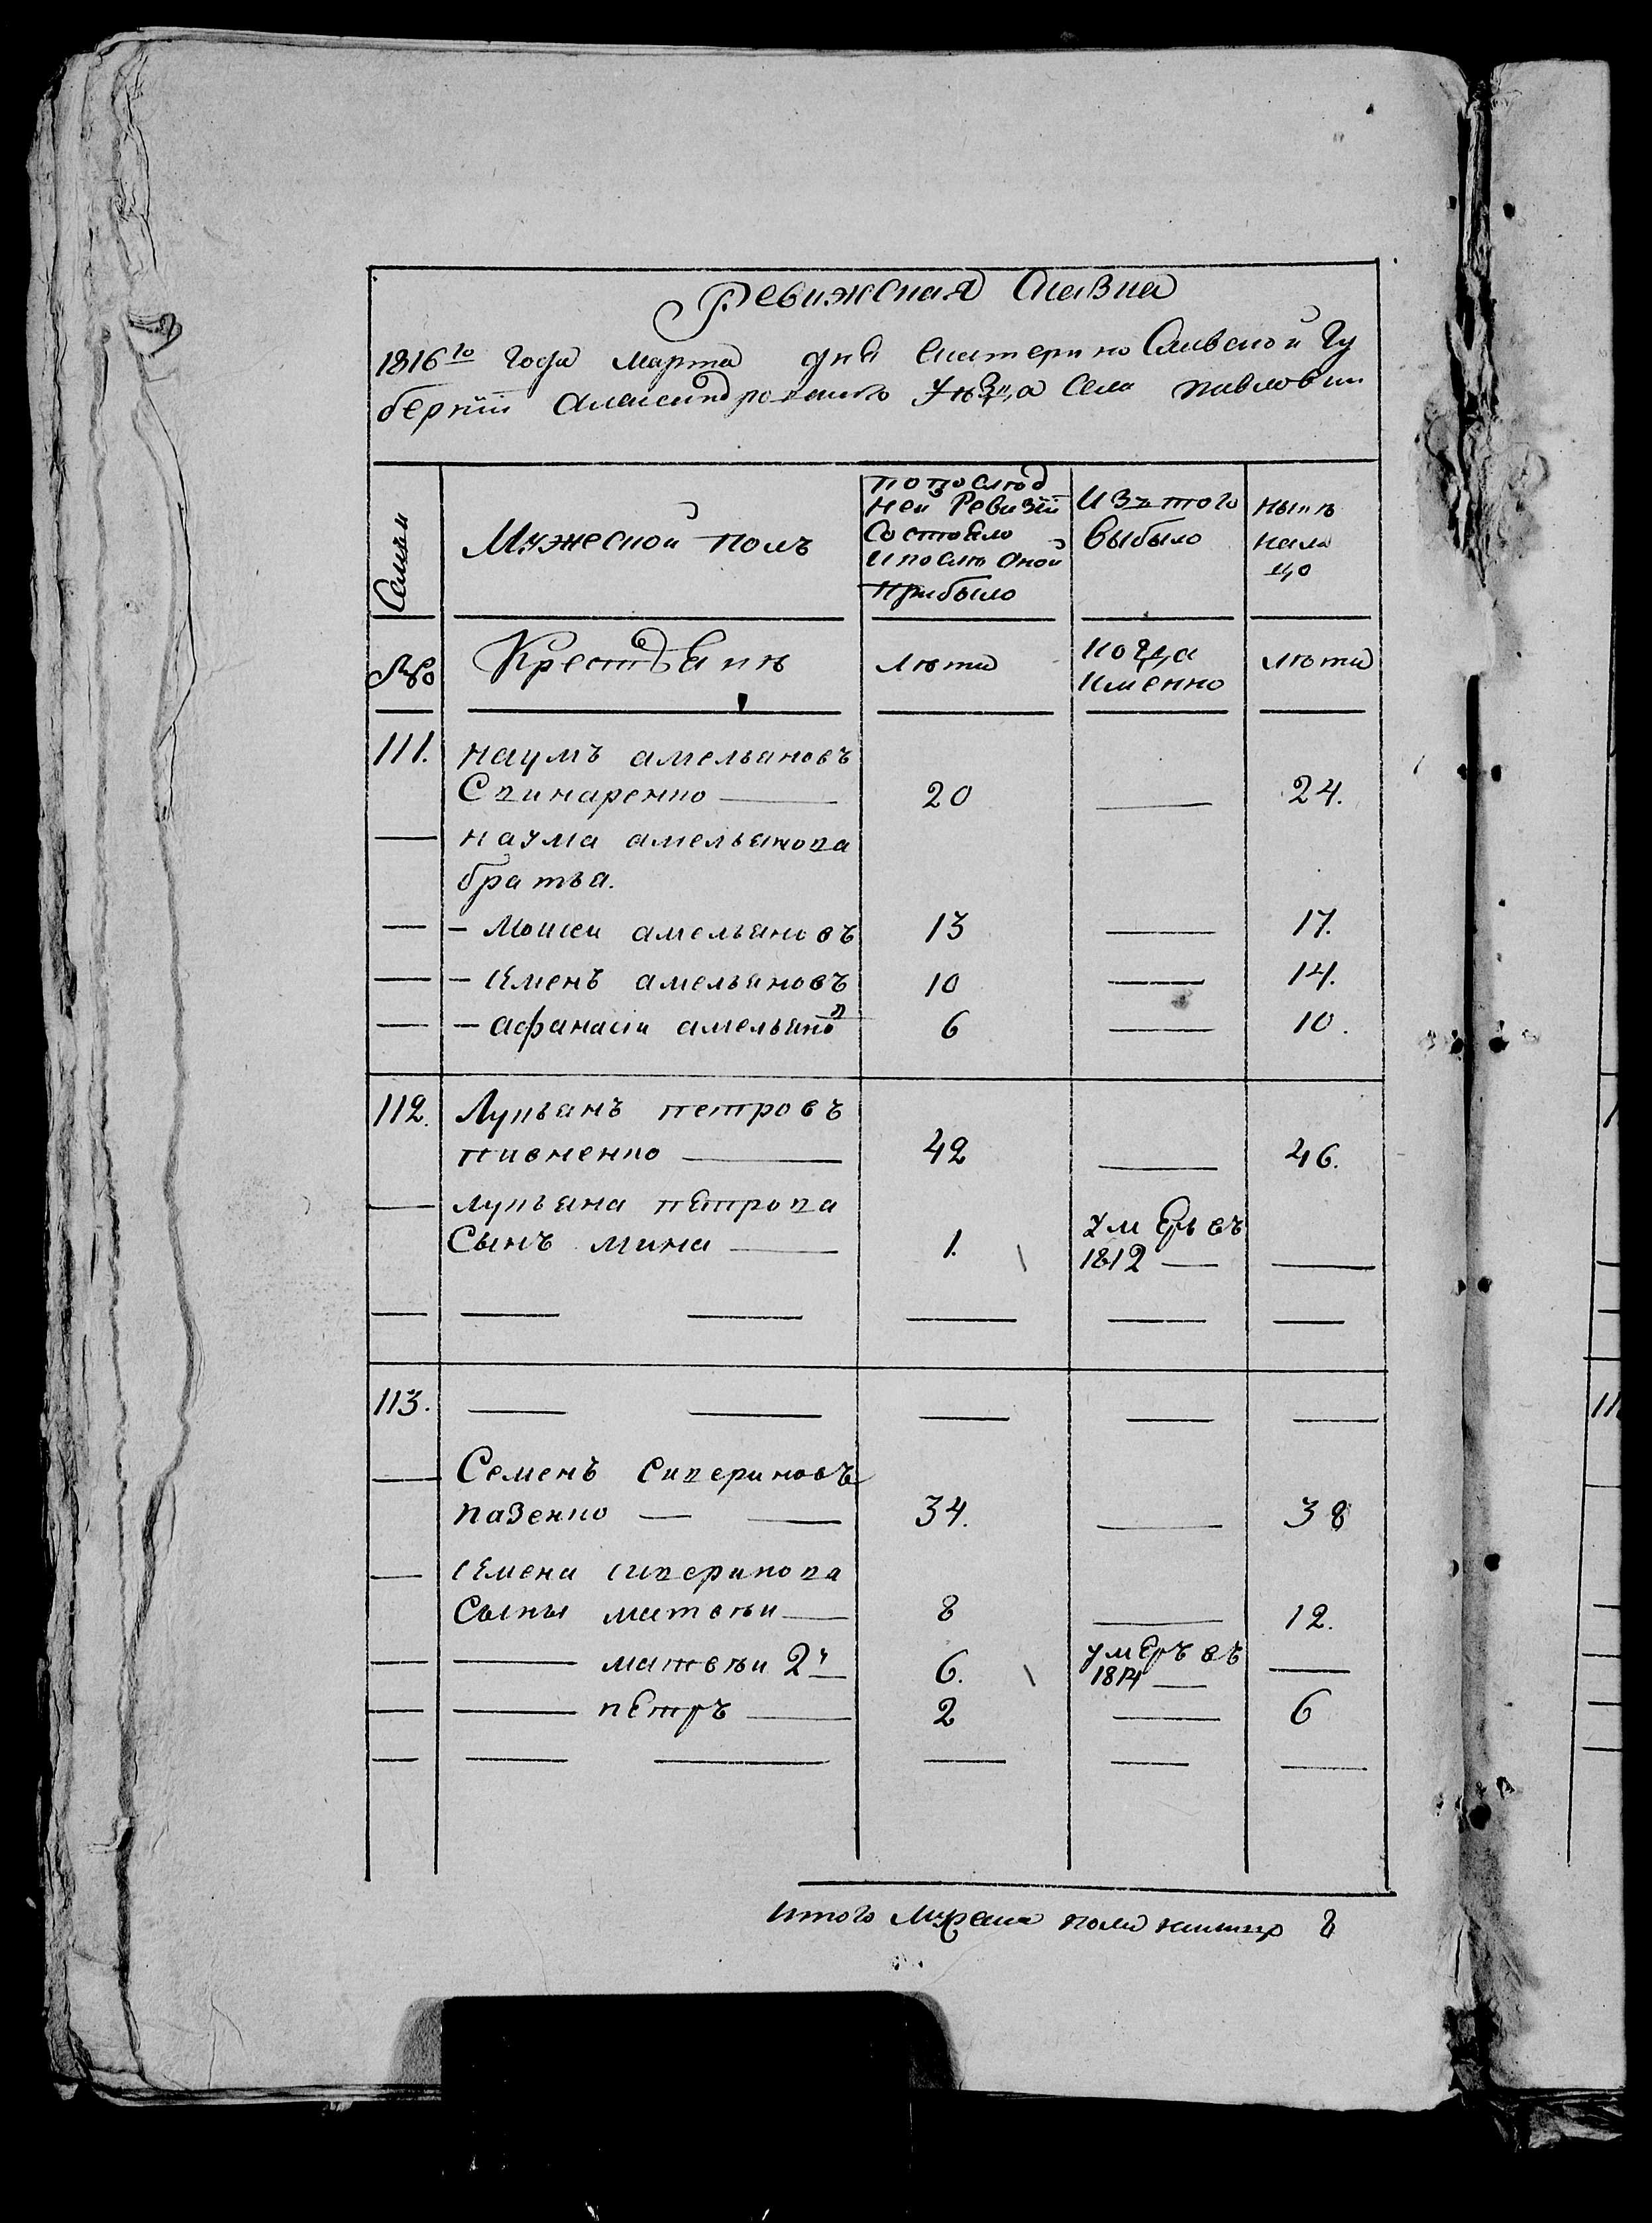 Ревижская Сказка
1816го года марта дня Екатеринославской Гу
бернии Александровскаго Уезда Села павловки
Семьи
Мужеской полъ
по послед
ней Ревизии
Состояло
и после оной
прибыло
Изъ того
выбыло
ныне
нали
цо
№
Крестьяне
лета
когда
именно
лета
111. наумъ амельяновъ
Спинаренко — 20 — 24.
— наума амельянова
братья.
— – Моисеи амельяновъ 13 — 17.
— – семенъ амельяновъ 10 — 14.
— – афанасии амельяновъ 6 — 10.
112. Лукьянъ петровъ
пивненко — 42 — 46.
— лукьяна петрова
Сынъ мина — 1. умеръ въ
1812 — —
— — — — — —
113. — — — — —
— Семенъ сивериновъ
пазенко — — 34. — 38
— семена сиверинова
Сыны матвеи — 8 — 12.
— — матвеи 2й 6. умеръ въ
1814 — —
— — петръ — 2 — 6
— — — — — —
Итого Мужеска пола налицо 8